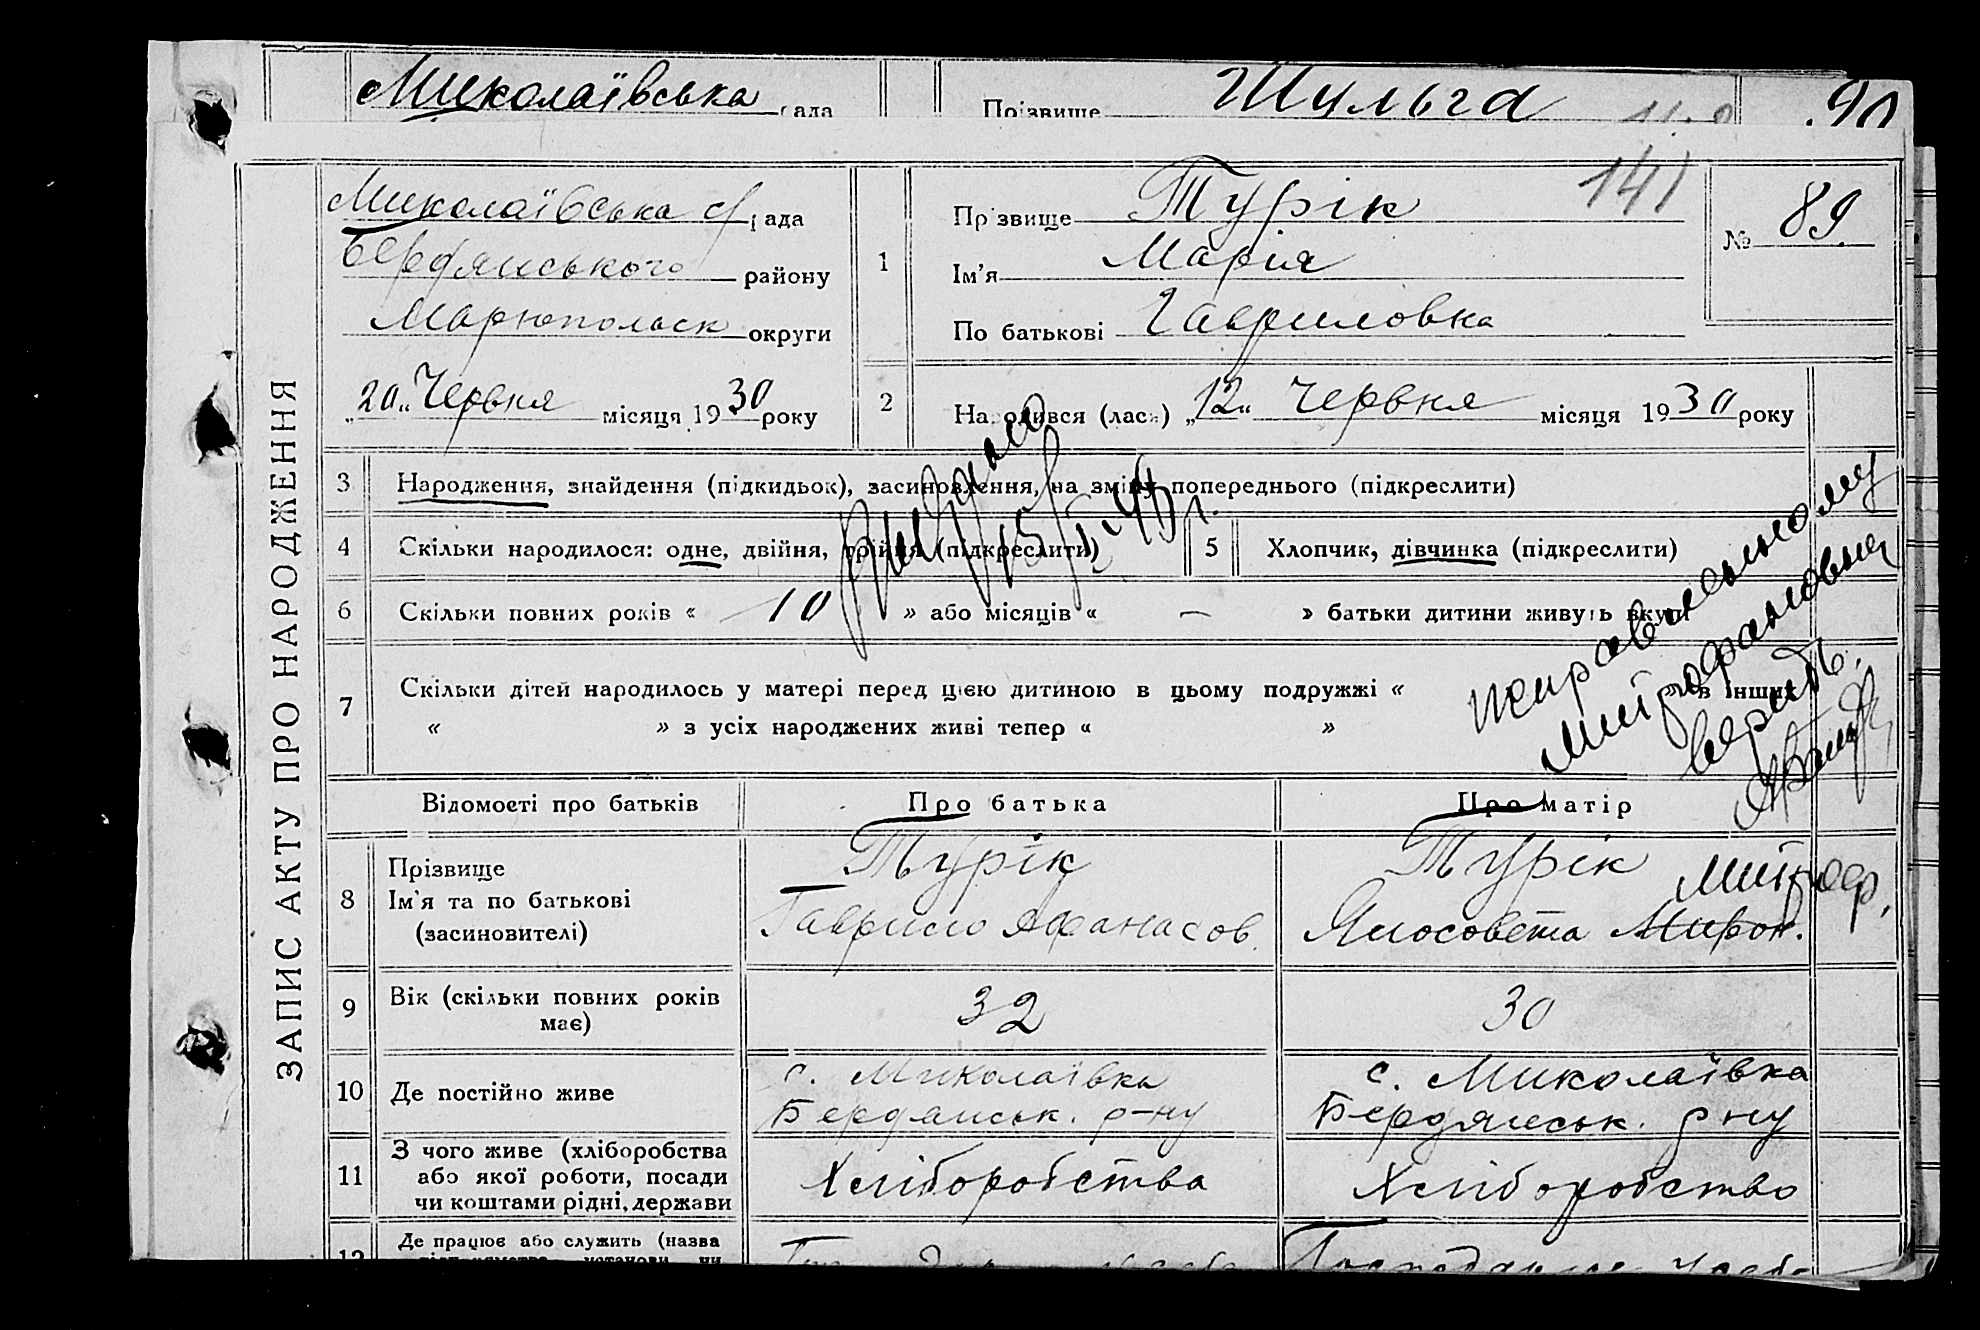 Миколаївська рада
Прізвище Шульга
90
ЗАПИС АКТУ ПРО НАРОДЖЕННЯ
Миколаївська с/рада
Бердянського району
Марюпольск округи
„20„ Червня місяця 1930 року
141
1 Прізвище Турік
Ім’я Марія
По батькові Гавриловка
№ 89
2 Народився (лася) „12„ червня місяця 1930 року
3 Народження, знайдення (підкидьок), засиновлення, на зміну попереднього (підкреслити)
4 Скільки народилося: одне, двійня, трійня (підкреслити)
5 Хлопчик, дівчинка (підкреслити)
6 Скільки повних років « 10 » або місяців « — » батьки дитини живуть вкупі
7 Скільки дітей народилось у матері перед цією дитиною в цьому подружжі « » в інших
« » з усіх народжених живі тепер « »
15/I-45 г.
исправленному
Митрофановна
верить.
Відомості про батьків
Про батька
Про матір
8 Прізвище
Ім’я та по батькові
(засиновителі)
Турік
Гаврило Афанасов.
Турік
Митроф.
Ялосовета Мирон.
9 Вік (скільки повних років
має)
32
30
10 Де постійно живе
с. Миколаївка
Бердянськ. р-ну
с. Миколаївка
Бердянськ. р ну
11 З чого живе (хліборобства
або якої роботи, посади
чи коштами рідні, держави
Хліборобства
Хліборобство
12 Де працює або служить (назва